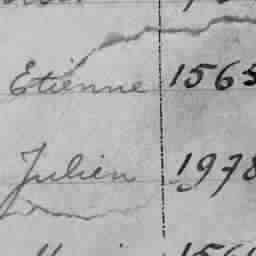 Etienne 1565
Julien 1978